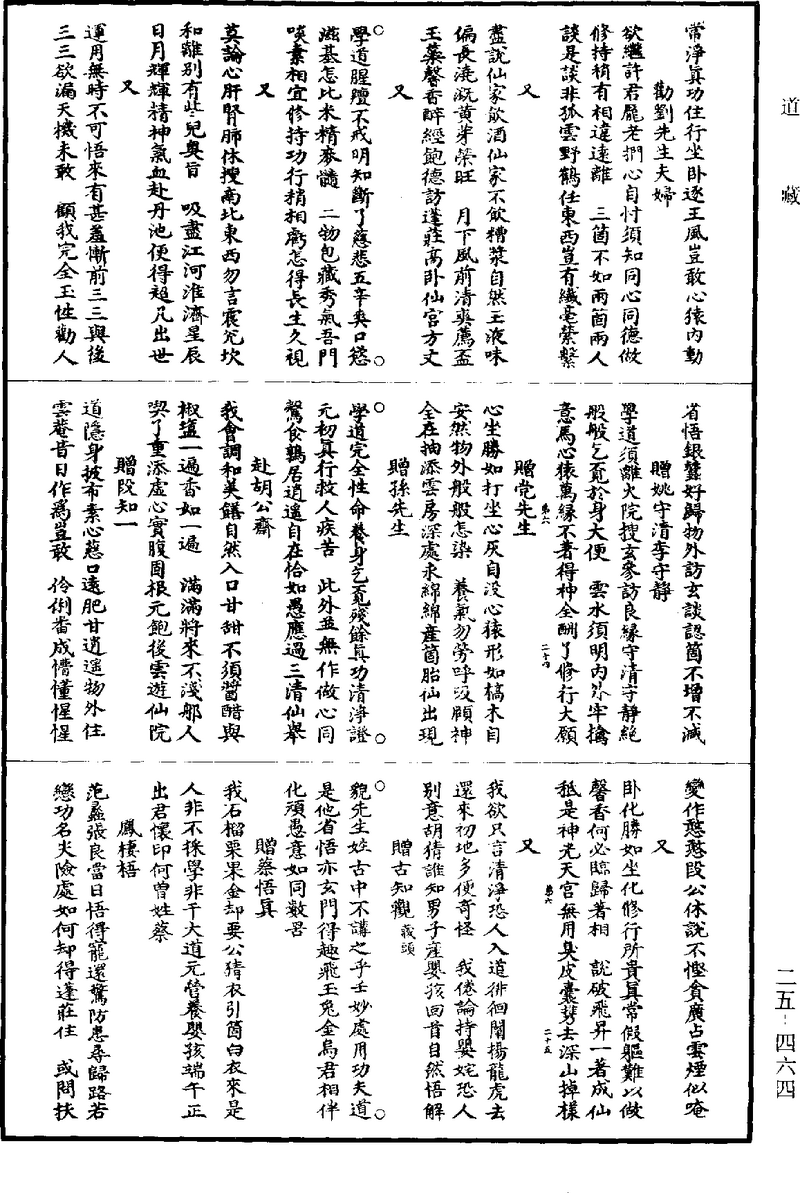 道藏
常淨真功住行坐卧逐王風豈敢心猿內動
勸劉先生夫婦
欲繼許君龐老捫心自忖須知同心同德做
修持稍有相違遠離　三箇不如兩箇兩人
談是談非孤雲野鶴任東西豈有纖毫縈繫
又
盡說仙家飲酒仙家不飲糟漿自然玉液味
偏長澆溉黃芽榮旺　月下風前清爽薦盃
玉蘂馨香醉經飽德訪蓬莊高卧仙宮方丈
又
學道腥羶不戒明知斷了慈悲五辛爽口慾
滋基怎比米精麥髓　二物包藏秀氣吾門
啖素相宜修持功行稍相虧怎得長生久視
又
莫論心肝腎肺休搜南北東西勿言震兌坎
和離別有些兒奧旨　吸盡江河淮濟星辰
日月輝輝精神氣血赴丹池便得超凡出世
又
運用無時不可悟來有甚羞慚前三三與後
三三欲漏天機未敢　顧我完全玉性勸人
省悟銀蠶好歸物外訪玄談認箇不增不減
贈姚守清李守靜
學道須離火院搜玄參訪良緣守清守靜絕
般般乞覓於身大便　雲水須明內外牢擒
意馬心猿萬緣不著得神全酬了修行大願
第六　二十四
贈党先生
心坐勝如打坐心灰自沒心猿形如槁木自
安然物外般般怎染　養氣勿勞呼吸顧神
全在抽添雲房深處永綿綿產箇胎仙出現
贈孫先生
學道完全性命養身乞覓殘餘真功清淨證
元初真行救人疾苦　此外並無作做心同
鷖食鶉居逍遙自在恰如愚應過三清仙舉
赴胡公齋
我會調和美饍自然入口甘甜不須醬醋與
椒塩一遍香如一遍　滿滿將來不淺那人
喫了重添虛心實腹固根元飽後雲遊仙院
贈段知一
道隱身披布素心慈口遠肥甘逍遥物外住
雲菴昔日作爲豈敢　伶俐番成懵懂惺惺
變作憨憨段公休說不慳貪廣占雲煙似唵
又
卧化勝如坐化修行所貴真常假軀難以做
馨香何必臨歸著相　說破飛昇一著成仙
秪是神光天宮無用臭皮囊剺去深山掉㨾
第六　二十五
又
我欲只言清淨恐人入道徘徊闡揚龍虎去
還來初地多便奇怪　我倦論持嬰姹恐人
別意胡猜誰知男子產嬰孩回首自然悟解
贈古知觀藏頭
貌先生姓古中不講之乎壬妙處用功夫道
是他省悟亦玄門得趣飛玉兔金烏君相伴
化頑愚意如同數罟
贈蔡悟真
我石榴栗果金却要公猜衣引箇白衣來是
人非不採學非干大道元營養嬰孩端午正
出君懷印何曾姓蔡
鳳棲梧
范蠡張良當日悟得寵還驚防患尋歸路若
戀功名失險處如何却得蓬莊住　或問扶
二五—四六四